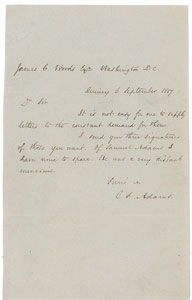 James C. Woods Esq. Washington D.C.
Quincy 6 September 1887.
Dr Sir
It is not easy for me to supply
letters to the constant demand for them.
I send you three signatures
of those you want. Of Samuel Adams I
have none to spare. He was a very distant
connexion.
C F Adams.